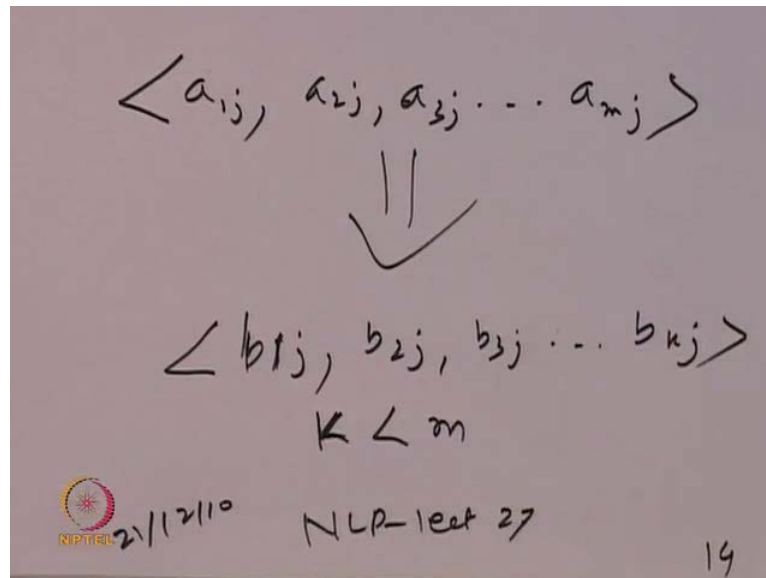 <a₁ⱼ, a₂ⱼ, a₃ⱼ ... aₘⱼ>
⇓
<b1ⱼ, b₂ⱼ, b₃ⱼ ... bₖⱼ>
K < m
NPTEL 21/12/10 NLP-lect 27
19